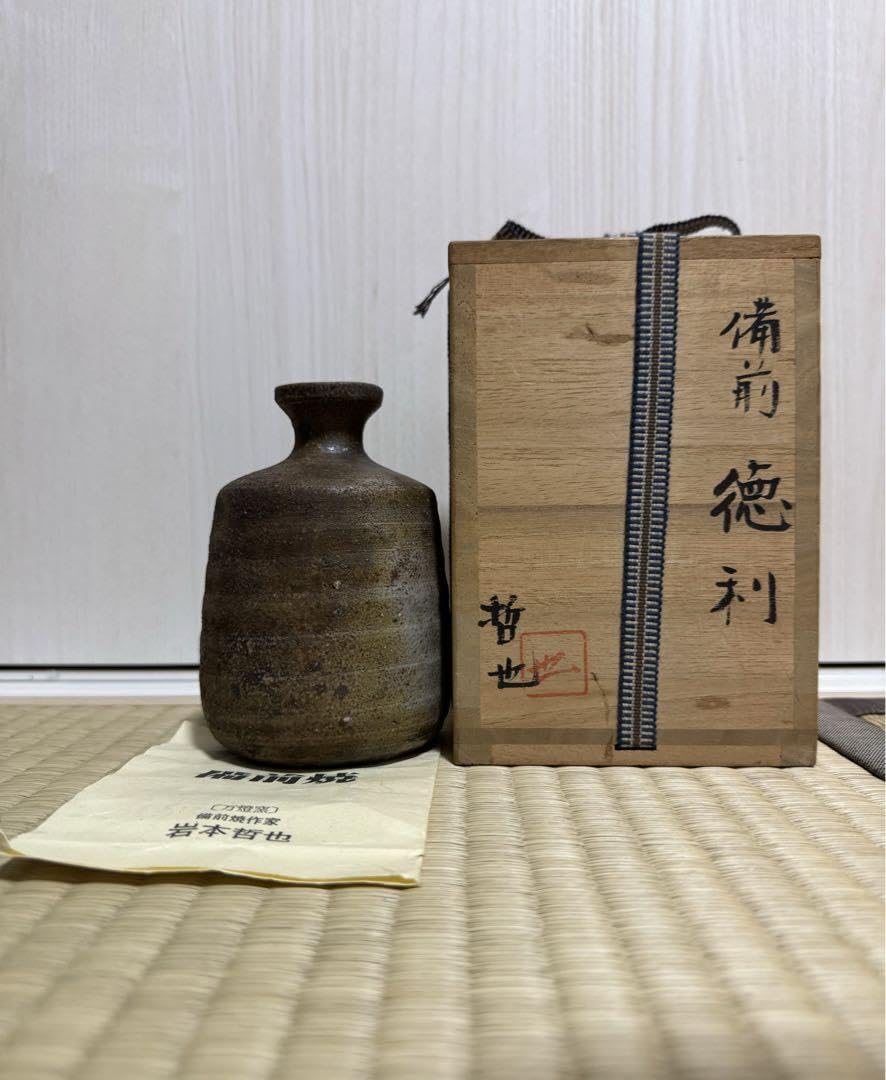 備前 徳利
哲也
備前焼
〔万燈窯〕
備前焼作家
岩本哲也